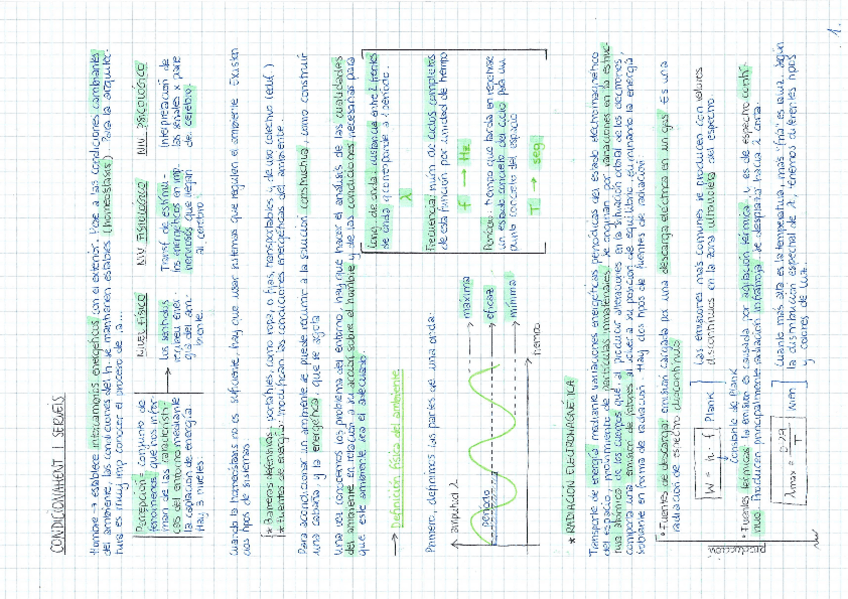 1.
CONDICIONAMENT I SERVEIS
Hombre → establece intercambios energéticos con el exterior. Pese a las condiciones cambiantes
del ambiente, las condiciones del h. se mantienen estables (homeostasis). Para la arquitec-
tura es muy imp. conocer el proceso de la...
Percepción: conjunto de
fenómenos que nos infor-
man de las características
cas del entorno mediante
la captación de energía.
Hay 3 niveles:
NIVEL FÍSICO
Los sentidos
reciben ener-
gía del am-
biente.
NIV. FISIOLÓGICO
Transf. de estímu-
los energéticos en imp.
nerviosos que llegan
al cerebro.
NIV. PSICOLÓGICO
Interpretación de
las señales x parte
del cerebro.
Cuando la homeostasis no es suficiente, hay que usar sistemas que regulen el ambiente. Existen
dos tipos de sistemas
* Barreras defensivas: portables, como ropa, o fijas, transportables y de uso colectivo (edif.)
* Fuentes de energía: modifican las condiciones energéticas del ambiente.
Para acondicionar un ambiente se puede recurrir a la solución constructiva, como construir
una cabaña, y la energética que se agota
Una vez conocemos los problema del entorno, hay que hacer el análisis de las cualidades
del ambiente en relación a su acción sobre el hombre y de las condiciones necesarias para
que este ambiente sea el adecuado.
→ Definición física del ambiente
Primero, definimos las partes de una onda:
amplitud
periodo
máxima
eficaz
mínima
tiempo
Long. de onda: distancia entre 2 frentes
de onda q corresponde a 1 período.
λ
Frecuencia: núm. de ciclos completos
de esta función por unidad de tiempo
f → Hz
Período: tiempo que tarda en repetirse
un estado concreto del ciclo por un
punto concreto del espacio
T → seg.
* RADIACIÓN ELECTROMAGNÉTICA
Transporte de energía mediante variaciones energéticas periódicas del estado electromagnético
del espacio, movimiento de partículas inmateriales. Se originan por variaciones en la estruc-
tura atómica de los cuerpos que al producir alteraciones en la situación orbital de los electrones,
comporta una emisión de fotones al volver a su posición de equilibrio, eliminando la energía
sobrante en forma de radiación. Hay dos tipos de fuentes de radiación:
PRODUCCIÓN
• Fuentes de descarga: emisión causada por una descarga eléctrica en un gas. Es una
radiación de espectro discontinuo
W = h · f Plank
Constante de Plank
Las emisiones más comunes se producen con valores
discontinuos en la zona ultravioleta del espectro
• Fuentes térmicas: la emisión es causada por agitación térmica, y es de espectro contí-
nuo. Producen principalmente radiación infrarroja. Se desplazan hacia λ corta.
λmax = 0'29 / T Wien
Cuanto más alta es la temperatura, más "fría" es la luz. Según
la distribución espectral de λ, tenemos diferentes tipos
y colores de luz.